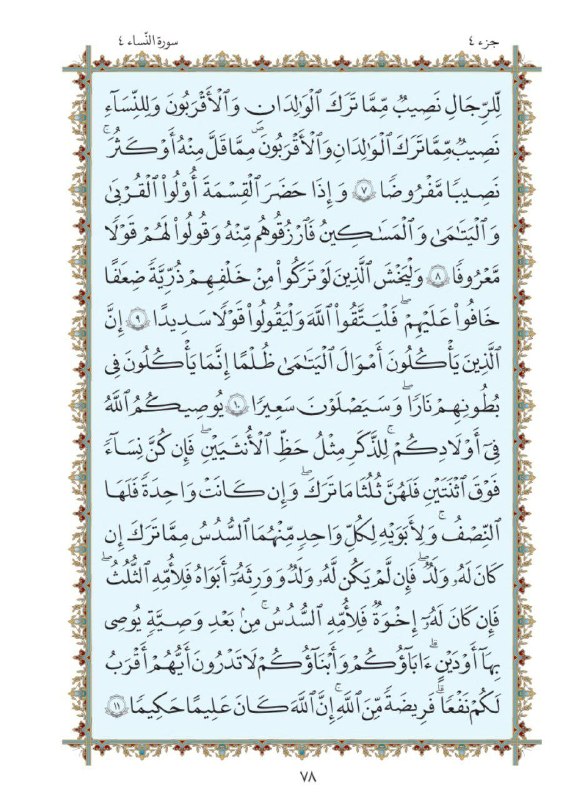 جزء ٤
سورة النّساء ٤
لِّلرِّجَالِ نَصِيبٌ مِّمَّا تَرَكَ الْوَٰلِدَانِ وَالْأَقْرَبُونَ وَلِلنِّسَآءِ
نَصِيبٌ مِّمَّا تَرَكَ الْوَٰلِدَانِ وَالْأَقْرَبُونَ مِمَّا قَلَّ مِنْهُ أَوْ كَثُرَ ۚ
نَصِيبًا مَّفْرُوضًا ٧ وَإِذَا حَضَرَ الْقِسْمَةَ أُوْلُوا الْقُرْبَىٰ
وَالْيَتَٰمَىٰ وَالْمَسَٰكِينُ فَارْزُقُوهُم مِّنْهُ وَقُولُوا لَهُمْ قَوْلًا
مَّعْرُوفًا ٨ وَلْيَخْشَ الَّذِينَ لَوْ تَرَكُوا مِنْ خَلْفِهِمْ ذُرِّيَّةً ضِعَٰفًا
خَافُوا عَلَيْهِمْ ۖ فَلْيَتَّقُوا اللَّهَ وَلْيَقُولُوا قَوْلًا سَدِيدًا ٩ إِنَّ
الَّذِينَ يَأْكُلُونَ أَمْوَالَ الْيَتَٰمَىٰ ظُلْمًا إِنَّمَا يَأْكُلُونَ فِى
بُطُونِهِمْ نَارًا ۖ وَسَيَصْلَوْنَ سَعِيرًا ١٠ يُوصِيكُمُ اللَّهُ
فِىٓ أَوْلَادِكُمْ ۚ لِلذَّكَرِ مِثْلُ حَظِّ الْأُنثَيَيْنِ ۖ فَإِن كُنَّ نِسَآءً
فَوْقَ اثْنَتَيْنِ فَلَهُنَّ ثُلُثَا مَا تَرَكَ ۖ وَإِن كَانَتْ وَاحِدَةً فَلَهَا
النِّصْفُ ۚ وَلِأَبَوَيْهِ لِكُلِّ وَاحِدٍ مِّنْهُمَا السُّدُسُ مِمَّا تَرَكَ إِن
كَانَ لَهُۥ وَلَدٌ ۖ فَإِن لَّمْ يَكُن لَّهُۥ وَلَدٌ وَوَرِثَهُۥٓ أَبَوَاهُ فَلِأُمِّهِ الثُّلُثُ ۖ
فَإِن كَانَ لَهُۥٓ إِخْوَةٌ فَلِأُمِّهِ السُّدُسُ ۚ مِنۢ بَعْدِ وَصِيَّةٍ يُوصِى
بِهَآ أَوْ دَيْنٍ ۗ ءَابَآؤُكُمْ وَأَبْنَآؤُكُمْ لَا تَدْرُونَ أَيُّهُمْ أَقْرَبُ
لَكُمْ نَفْعًا ۗ فَرِيضَةً مِّنَ اللَّهِ ۚ إِنَّ اللَّهَ كَانَ عَلِيمًا حَكِيمًا ١١
٧٨